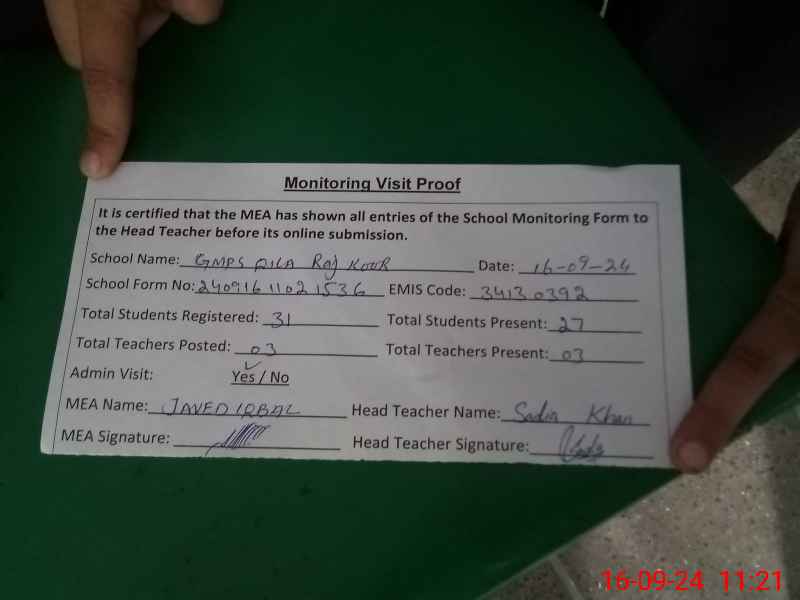 Monitoring Visit Proof
It is certified that the MEA has shown all entries of the School Monitoring Form to
the Head Teacher before its online submission.
School Name: GMPS QILA Raj KOOR Date: 16-09-24
School Form No: 2409161102 1536 EMIS Code: 34130392
Total Students Registered: 31 Total Students Present: 27
Total Teachers Posted: 03 Total Teachers Present: 03
Admin Visit: Yes / No
MEA Name: JAVED IQBAL Head Teacher Name: Sadia Khan
MEA Signature: Head Teacher Signature:
16-09-24 11:21